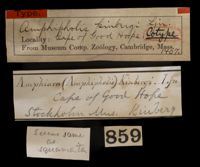 Type.
Amphipholis Kinbergi Ljn.
Locality: Cape of Good Hope Cotype
From Museum Comp. Zoology, Cambridge, Mass.
Amphiura (Amphipholis) Kinbergi. Ljn
Cape of Good Hope
Stockholm Mus. Kinberg
Seems same
as
squamata
859